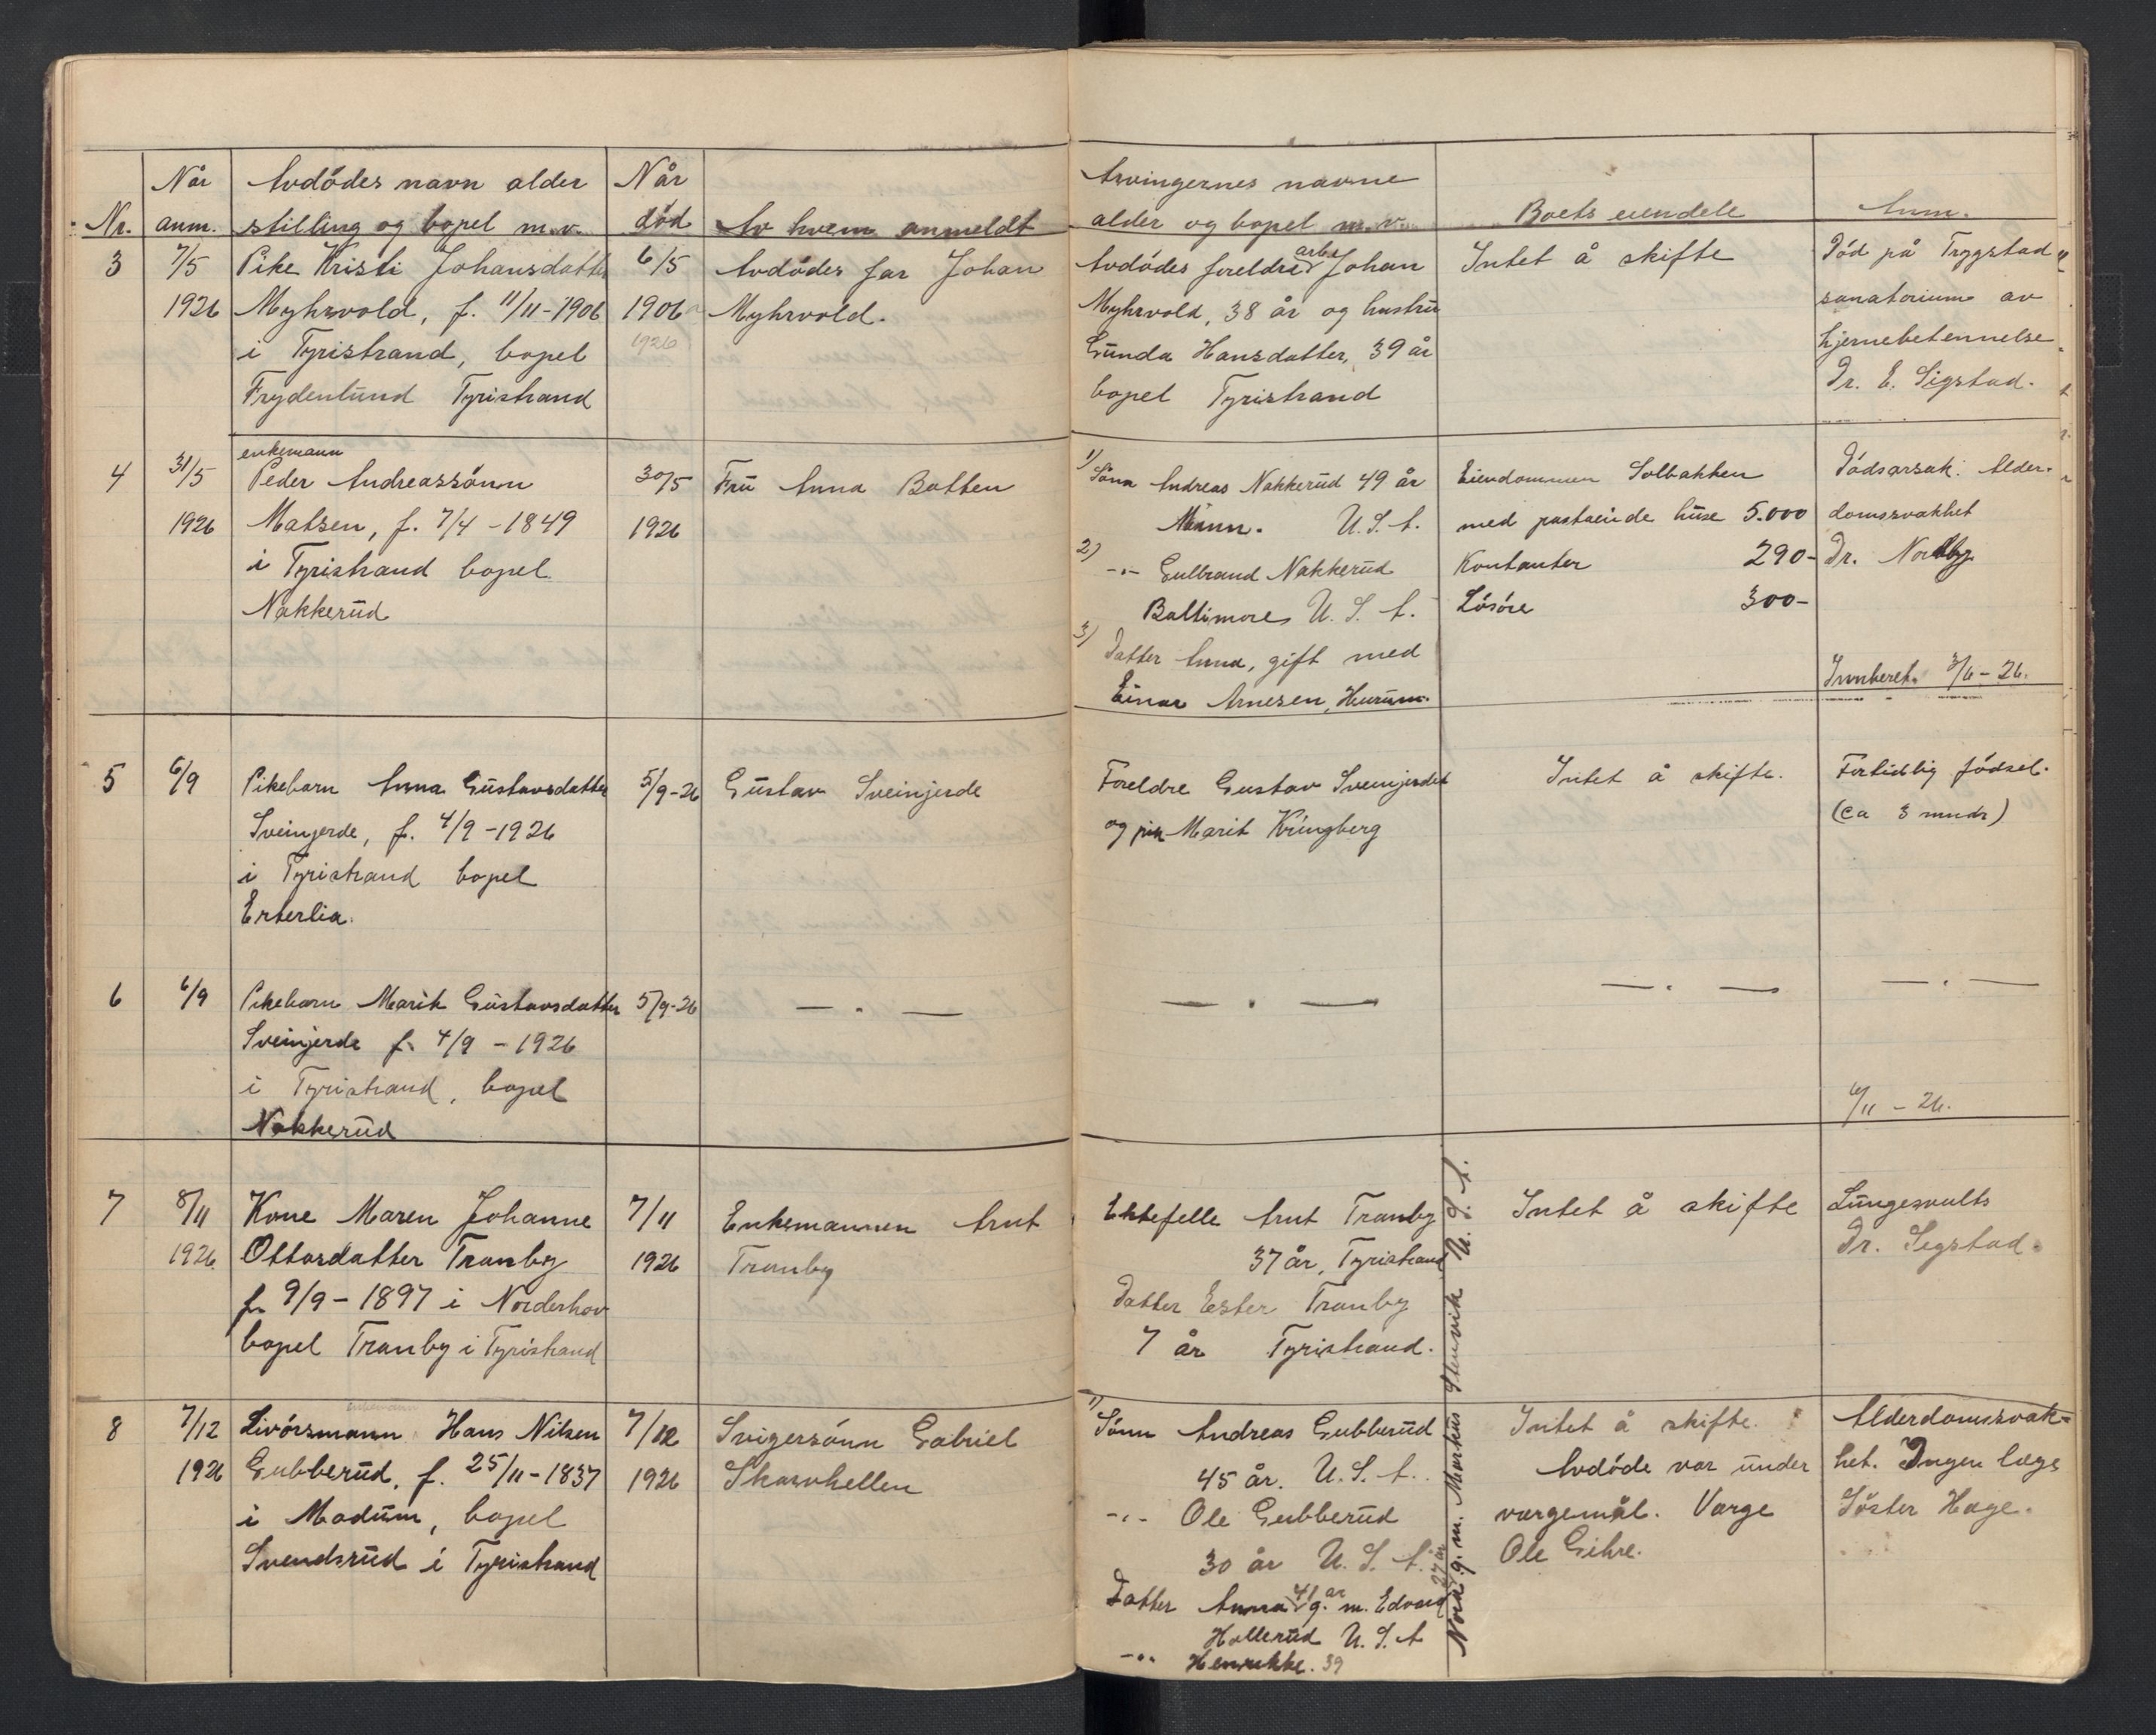 Nr. | Når anm. | Avdödes navn alder stilling og bopel m.v. | Når död | Av hvem anmeldt | Arvingernes navne alder og bopel m.v. | Boets eiendele | Anm.
3
7/5
1926
Pike Kristi Johansdatter
Myhrvold, f. 11/11-1906
i Tyristrand, bopel
Frydenlund Tyristrand
6/5
1906
1926
Avdödes far Johan
Myhrvold.
Avdödes foreldre arb. Johan
Myhrvold, 38 år og hustru
Gunda Hansdatter, 39 år
bopel Tyristrand
Intet å skifte
Död på Trygstad
sanatorium av
hjernebetennelse
Dr. E. Sigstad.
4
31/5
1926
enkemann
Peder Andreassönn
Matsen, f. 7/4-1849
i Tyristrand bopel
Nakkerud
30/5
1926
Fru Anna Batten
1) Sönn Andreas Nakkerud 49 år
Minn. U.S.A.
2) -"- Gulbrand Nakkerud
Baltimore U.S.A.
3) Datter Anna, gift med
Einar Arnesen, Hurum.
Eiendommen Solbakken
med påstående huse 5.000
Kontanter 290-
Lösöre 300-
Dödsarsak: Alder-
domssvakhet
Dr. Nordby
Innberet. 3/6-26.
5
6/9
Pikebarn Anna Gustavsdatter
Sveinjerde, f. 4/9-1926
i Tyristrand bopel
Erterlia.
5/9-26
Gustav Sveinjerde
Foreldre Gustav Sveinjerdet
og Marit Kringberg
Intet å skifte.
Fortidlig födsel.
(ca 3 mndr)
6
6/9
Pikebarn Marit Gustavsdatter
Sveinjerde f. 4/9-1926
i Tyristrand, bopel
Nakkerud
5/9-26
— " —
— " —
— " —
— " —
6/11-26.
7
8/11
1926
Kone Maren Johanne
Ottosdatter Tranby
f. 9/9-1897 i Norderhov
bopel Tranby i Tyristrand
7/11
1926
Enkemannen Arnt
Tranby
Ektefelle Arnt Tranby
37 år, Tyristrand
Datter Ester Tranby
7 år Tyristrand.
Intet å skifte
Lungesvulst
Dr. Sigstad.
8
7/12
1926
enkemann
Livörsmann Hans Nilsen
Gubberud, f. 25/11-1837
i Modum, bopel
Svendsrud i Tyristrand
7/12
1926
Svigersönn Gabriel
Skarvhellen
1) Sönn Andreas Gubberud
45 år. U.S.A.
-"- Ole Gubberud
30 år U.S.A.
Datter Anna 41 år g. m. Edvard
Hollerud U.S.A
-"- Henrikke. 39
Nora 27 år g. m. Markus Stenvik U.S.A.
Intet å skifte.
Avdöde var under
vergemål. Verge
Ole Gihre.
Alderdomssvak-
het. Ingen læge
Söster Hage.